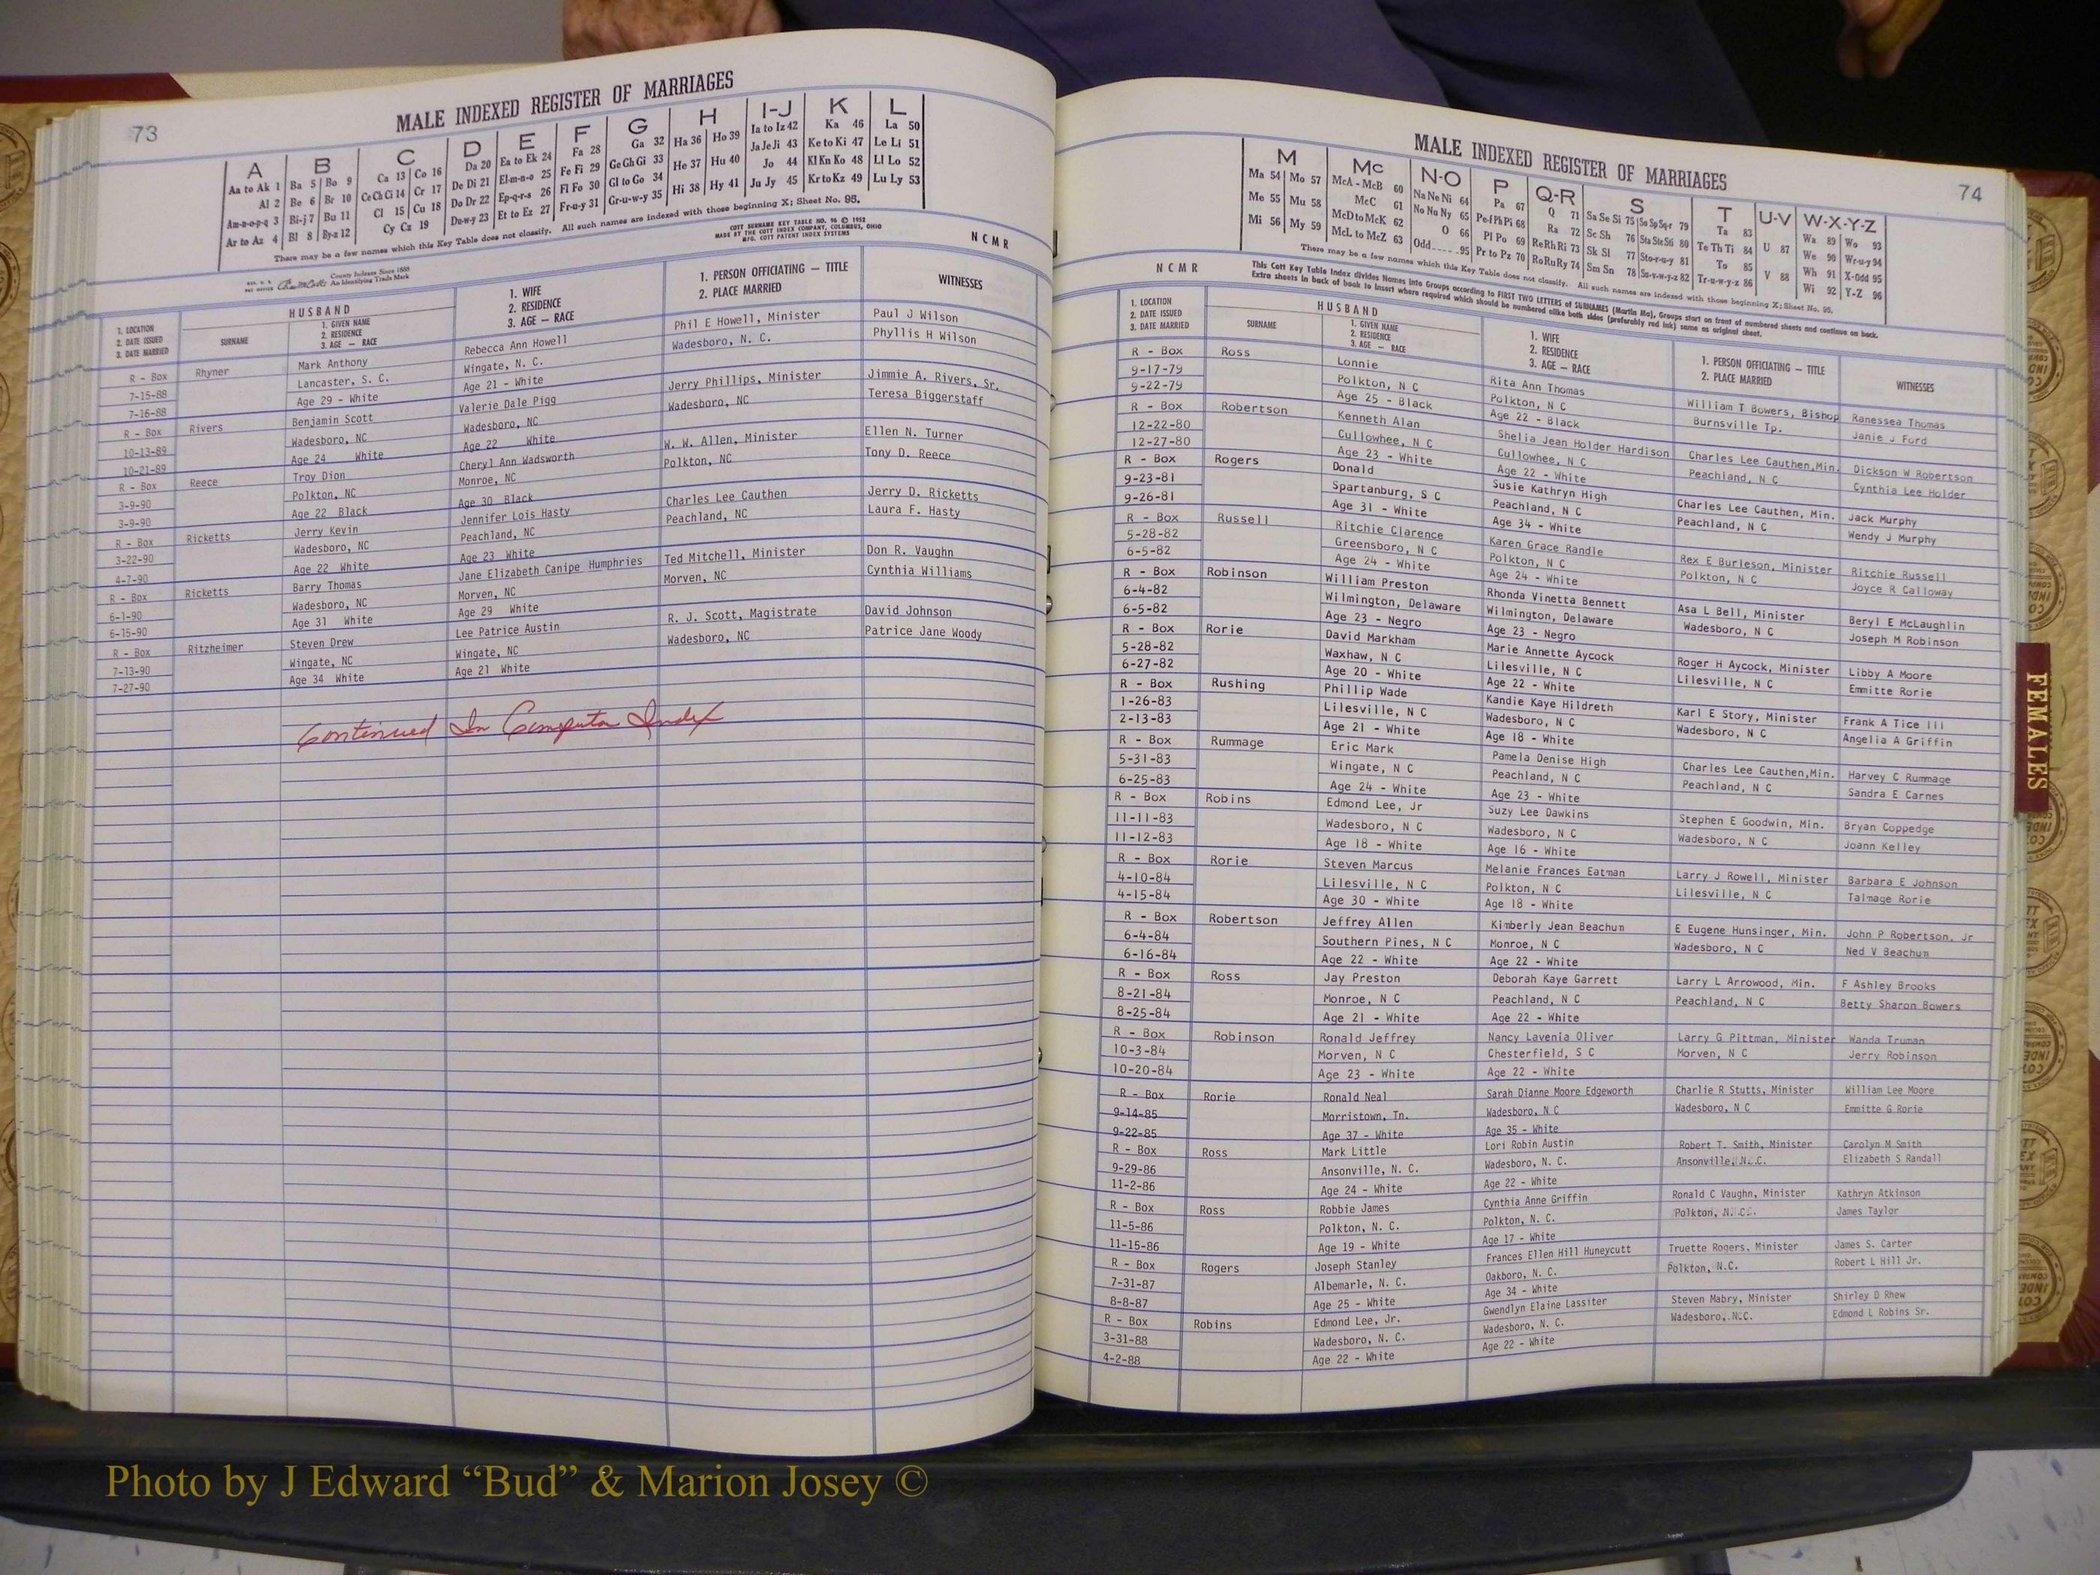 73
MALE INDEXED REGISTER OF MARRIAGES
A B C D E F G H I-J K L
Aa to Ak 1 Ba 5 Bo 9 Ca 13 Co 16 Da 20 Ea to Ek 24 Fa 28 Ga 32 Ha 36 Ho 39 Ia to Iz 42 Ka 46 La 50
Al 2 Be 6 Br 10 Ce Ch Ci 14 Cr 17 De Di 21 El-m-n-o 25 Fe Fi 29 Ge Gh Gi 33 He 37 Hu 40 Ja Je Ji 43 Ke to Ki 47 Le Li 51
Am-n-o-p-q 3 Bi-j 7 Bu 11 Cl 15 Cu 18 Do Dr 22 Ep-q-r-s 26 Fl Fo 30 Gl to Go 34 Hi 38 Hy 41 Jo 44 Kl Kn Ko 48 Ll Lo 52
Ar to Az 4 Bl 8 By-z 12 Cy Cz 19 Du-w-y 23 Et to Ez 27 Fr-u-y 31 Gr-u-w-y 35 Ju Jy 45 Kr to Kz 49 Lu Ly 53
There may be a few names which this Key Table does not classify. All such names are indexed with those beginning X; Sheet No. 95.
COTT SURNAME KEY TABLE NO. 96 © 1952
MADE BY THE COTT INDEX COMPANY, COLUMBUS, OHIO
MFG. COTT PATENT INDEX SYSTEMS
County Indexes Since 1888
An Identifying Trade Mark
N C M R
1. LOCATION
2. DATE ISSUED
3. DATE MARRIED
HUSBAND
SURNAME
1. GIVEN NAME
2. RESIDENCE
3. AGE — RACE
1. WIFE
2. RESIDENCE
3. AGE — RACE
1. PERSON OFFICIATING — TITLE
2. PLACE MARRIED
WITNESSES
R - Box Rhyner Mark Anthony Rebecca Ann Howell Phil E Howell, Minister Paul J Wilson
7-15-88 Lancaster, S. C. Wingate, N. C. Wadesboro, N. C. Phyllis H Wilson
7-16-88 Age 29 - White Age 21 - White
R - Box Rivers Benjamin Scott Valerie Dale Pigg Jerry Phillips, Minister Jimmie A. Rivers, Sr.
10-13-89 Wadesboro, NC Wadesboro, NC Wadesboro, NC Teresa Biggerstaff
10-21-89 Age 24 White Age 22 White
R - Box Reece Troy Dion Cheryl Ann Wadsworth W. W. Allen, Minister Ellen N. Turner
3-9-90 Polkton, NC Monroe, NC Polkton, NC Tony D. Reece
3-9-90 Age 22 Black Age 30 Black
R - Box Ricketts Jerry Kevin Jennifer Lois Hasty Charles Lee Cauthen Jerry D. Ricketts
3-22-90 Wadesboro, NC Peachland, NC Peachland, NC Laura F. Hasty
4-7-90 Age 22 White Age 23 White
R - Box Ricketts Barry Thomas Jane Elizabeth Canipe Humphries Ted Mitchell, Minister Don R. Vaughn
6-1-90 Wadesboro, NC Morven, NC Morven, NC Cynthia Williams
6-15-90 Age 31 White Age 29 White
R - Box Ritzheimer Steven Drew Lee Patrice Austin R. J. Scott, Magistrate David Johnson
7-13-90 Wingate, NC Wingate, NC Wadesboro, NC Patrice Jane Woody
7-27-90 Age 34 White Age 21 White
Continued In Computer Index
MALE INDEXED REGISTER OF MARRIAGES
74
M Mc N-O P Q-R S T U-V W-X-Y-Z
Ma 54 Mo 57 McA - McB 60 Na Ne Ni 64 Pa 67 Q 71 Sa Se Si 75 So Sp Sq-r 79 Ta 83 U 87 Wa 89 Wo 93
Me 55 Mu 58 McC 61 No Nu Ny 65 Pe-f Ph Pi 68 Ra 72 Sc Sh 76 Sta Ste Sti 80 Te Th Ti 84 V 88 We 90 Wr-u-y 94
Mi 56 My 59 McD to McK 62 O 66 Pl Po 69 Re Rh Ri 73 Sk Sl 77 Sto-r-u-y 81 To 85 Wh 91 X-Odd 95
McL to McZ 63 Odd 95 Pr to Pz 70 Ro Ru Ry 74 Sm Sn 78 Su-v-w-y-z 82 Tr-u-w-y-z 86 Wi 92 Y-Z 96
There may be a few names which this Key Table does not classify. All such names are indexed with those beginning X; Sheet No. 95.
N C M R
This Cott Key Table Index divides Names into Groups according to FIRST TWO LETTERS of SURNAMES (Martin Ma), Groups start on front of numbered sheets and continue on back.
Extra sheets in back of book to insert where required which should be numbered alike both sides (preferably red ink) same as original sheet.
1. LOCATION
2. DATE ISSUED
3. DATE MARRIED
HUSBAND
SURNAME
1. GIVEN NAME
2. RESIDENCE
3. AGE — RACE
1. WIFE
2. RESIDENCE
3. AGE — RACE
1. PERSON OFFICIATING — TITLE
2. PLACE MARRIED
WITNESSES
R - Box Ross Lonnie Rita Ann Thomas William T Bowers, Bishop Ranessea Thomas
9-17-79 Polkton, N C Polkton, N C Burnsville Tp. Janie J Ford
9-22-79 Age 25 - Black Age 22 - Black
R - Box Robertson Kenneth Alan Shelia Jean Holder Hardison Charles Lee Cauthen,Min. Dickson W Robertson
12-22-80 Cullowhee, N C Cullowhee, N C Peachland, N C Cynthia Lee Holder
12-27-80 Age 23 - White Age 22 - White
R - Box Rogers Donald Susie Kathryn High Charles Lee Cauthen, Min. Jack Murphy
9-23-81 Spartanburg, S C Peachland, N C Peachland, N C Wendy J Murphy
9-26-81 Age 31 - White Age 34 - White
R - Box Russell Ritchie Clarence Karen Grace Randle Rex E Burleson, Minister Ritchie Russell
5-28-82 Greensboro, N C Polkton, N C Polkton, N C Joyce R Calloway
6-5-82 Age 24 - White Age 24 - White
R - Box Robinson William Preston Rhonda Vinetta Bennett Asa L Bell, Minister Beryl E McLaughlin
6-4-82 Wilmington, Delaware Wilmington, Delaware Wadesboro, N C Joseph M Robinson
6-5-82 Age 23 - Negro Age 23 - Negro
R - Box Rorie David Markham Marie Annette Aycock Roger H Aycock, Minister Libby A Moore
5-28-82 Waxhaw, N C Lilesville, N C Lilesville, N C Emmitte Rorie
6-27-82 Age 20 - White Age 22 - White
R - Box Rushing Phillip Wade Kandie Kaye Hildreth Karl E Story, Minister Frank A Tice III
1-26-83 Lilesville, N C Wadesboro, N C Wadesboro, N C Angelia A Griffin
2-13-83 Age 21 - White Age 18 - White
R - Box Rummage Eric Mark Pamela Denise High Charles Lee Cauthen,Min. Harvey C Rummage
5-31-83 Wingate, N C Peachland, N C Peachland, N C Sandra E Carnes
6-25-83 Age 24 - White Age 23 - White
R - Box Robins Edmond Lee, Jr Suzy Lee Dawkins Stephen E Goodwin, Min. Bryan Coppedge
11-11-83 Wadesboro, N C Wadesboro, N C Wadesboro, N C Joann Kelley
11-12-83 Age 18 - White Age 16 - White
R - Box Rorie Steven Marcus Melanie Frances Eatman Larry J Rowell, Minister Barbara E Johnson
4-10-84 Lilesville, N C Polkton, N C Lilesville, N C Talmage Rorie
4-15-84 Age 30 - White Age 18 - White
R - Box Robertson Jeffrey Allen Kimberly Jean Beachum E Eugene Hunsinger, Min. John P Robertson, Jr
6-4-84 Southern Pines, N C Monroe, N C Wadesboro, N C Ned V Beachum
6-16-84 Age 22 - White Age 22 - White
R - Box Ross Jay Preston Deborah Kaye Garrett Larry L Arrowood, Min. F Ashley Brooks
8-21-84 Monroe, N C Peachland, N C Peachland, N C Betty Sharon Bowers
8-25-84 Age 21 - White Age 22 - White
R - Box Robinson Ronald Jeffrey Nancy Lavenia Oliver Larry G Pittman, Minister Wanda Truman
10-3-84 Morven, N C Chesterfield, S C Morven, N C Jerry Robinson
10-20-84 Age 23 - White Age 22 - White
R - Box Rorie Ronald Neal Sarah Dianne Moore Edgeworth Charlie R Stutts, Minister William Lee Moore
9-14-85 Morristown, Tn. Wadesboro, N C Wadesboro, N C Emmitte G Rorie
9-22-85 Age 37 - White Age 35 - White
R - Box Ross Mark Little Lori Robin Austin Robert T. Smith, Minister Carolyn M Smith
9-29-86 Ansonville, N. C. Wadesboro, N. C. Ansonville, N. C. Elizabeth S Randall
11-2-86 Age 24 - White Age 22 - White
R - Box Ross Robbie James Cynthia Anne Griffin Ronald C Vaughn, Minister Kathryn Atkinson
11-5-86 Polkton, N. C. Polkton, N. C. Polkton, N. C. James Taylor
11-15-86 Age 19 - White Age 17 - White
R - Box Rogers Joseph Stanley Frances Ellen Hill Huneycutt Truette Rogers, Minister James S. Carter
7-31-87 Albemarle, N. C. Oakboro, N. C. Polkton, N.C. Robert L Hill Jr.
8-8-87 Age 25 - White Age 34 - White
R - Box Robins Edmond Lee, Jr. Gwendlyn Elaine Lassiter Steven Mabry, Minister Shirley D Rhew
3-31-88 Wadesboro, N. C. Wadesboro, N. C. Wadesboro, N.C. Edmond L Robins Sr.
4-2-88 Age 22 - White Age 22 - White
FEMALES
Photo by J Edward “Bud” & Marion Josey ©